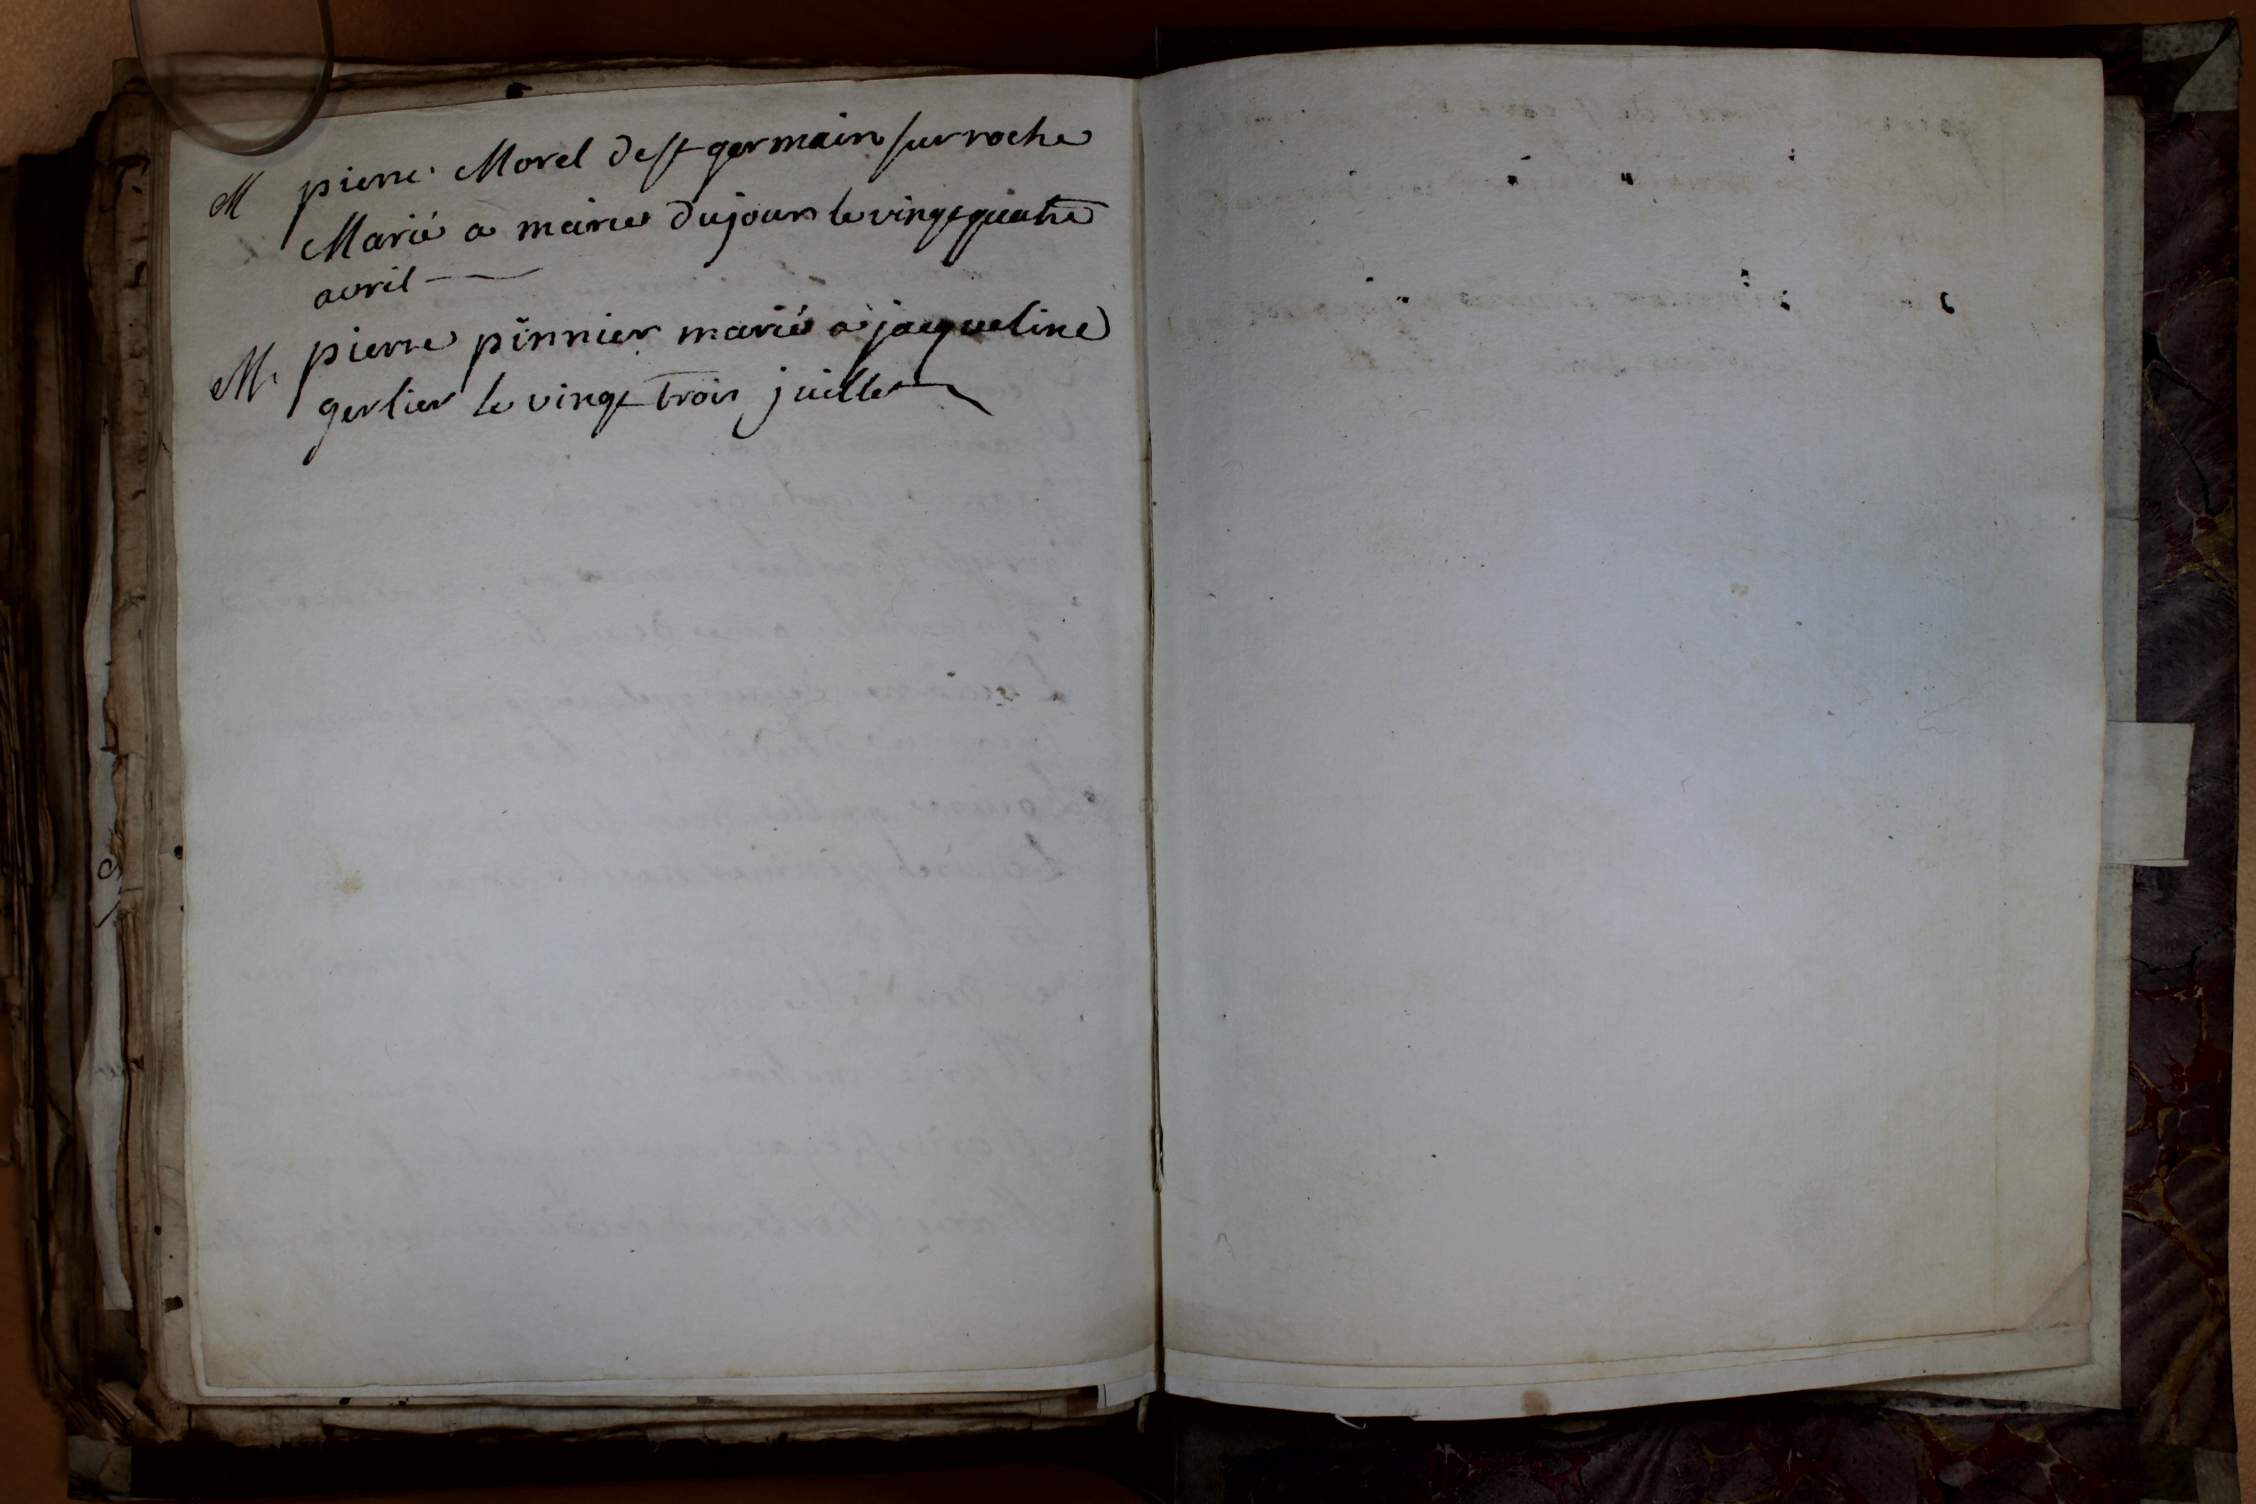 M pierre Morel de st germain sur roche
Marié a marie dujour le vingt quatre
avril
M. pierre pinnier marié a jacqueline
gerlier le vingt trois juillet